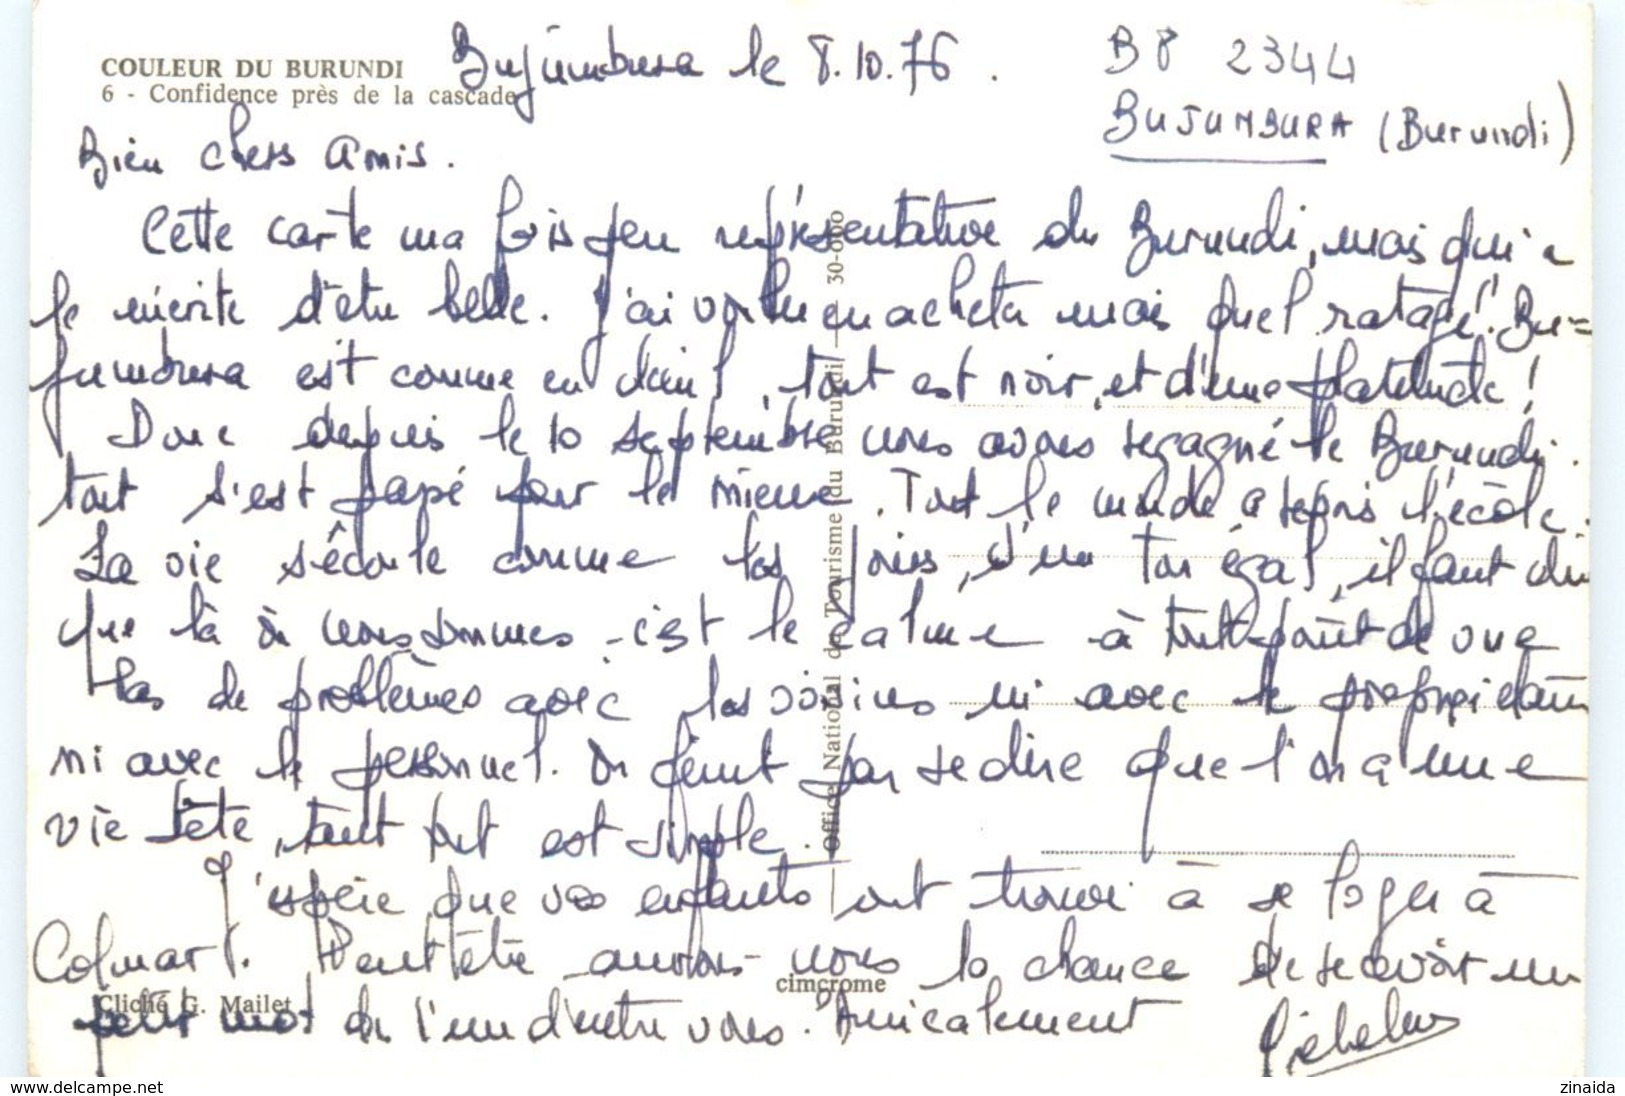 COULEUR DU BURUNDI
6 - Confidence près de la cascade
Bujumbura le 8.10.76.
BP 2344
BUJUMBURA (Burundi)
Bien chers Amis.
Cette carte ma fois peu représentative du Burundi, mais qui a
le mérite d'être belle. J'ai voulu en acheter mais quel ratage! Bu=
jumbura est comme en deuil, tout est noir, et d'une platitude!
Donc depuis le 10 septembre nous avons regagné le Burundi.
tout s'est passé pour le mieux. Tout le monde a repris l'école.
La vie s'écoule comme les jours, d'un ton égal, il faut dire
que là où nous sommes c'est le calme à tout point de vue
Pas de problèmes avec les voisins ni avec le propriétaire
ni avec le personnel. On peut pas se dire que l'on a une
vie bête, tout est simple.
J'espère que vos enfants ont trouvé à se loger à
Colmar. Peut être aurons-nous la chance de recevoir un
petit mot de l'un d'entre vous. Amicalement
Cliché G. Mailet
cimcrome
Office National du Tourisme du Burundi — 30-000
www.delcampe.net
zinaida